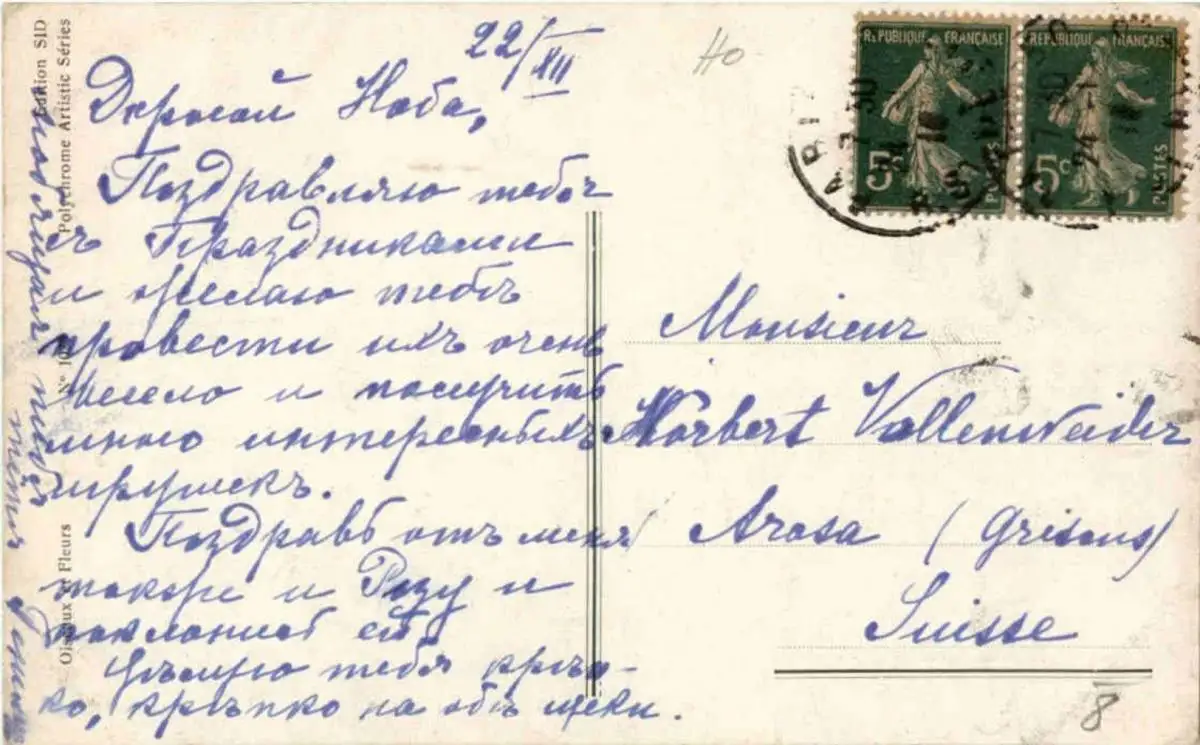 22/XII
Дорогой Ноба,
Поздравляю тебя
съ Праздниками
и желаю тебѣ
провести ихъ очень
весело и получить
много интересныхъ
игрушекъ.
Поздравь отъ меня
также и Розу и
поклонись ей.
Цѣлую тебя крѣп-
ко, крѣпко на обѣ щеки.
любящая тебя
тетя
HO
REPUBLIQUE FRANÇAISE
5c
POSTES
REPUBLIQUE FRANÇAISE
5c
POSTES
Monsieur
Norbert Vollenweider
Arosa (Grisons)
Suisse
8
Edition SID
Polychrome Artistic Séries
Oiseaux et Fleurs